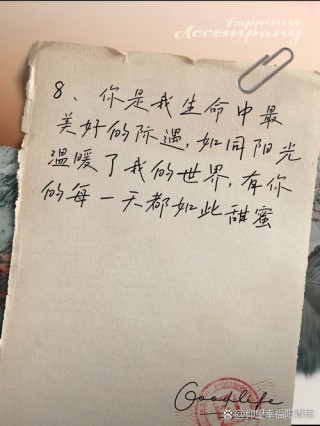 Happiness
Accompany
8、你是我生命中最
美好的际遇,如同阳光
温暖了我的世界,有你
的每一天都如此甜蜜
Good life
@仰望幸福阳春帮